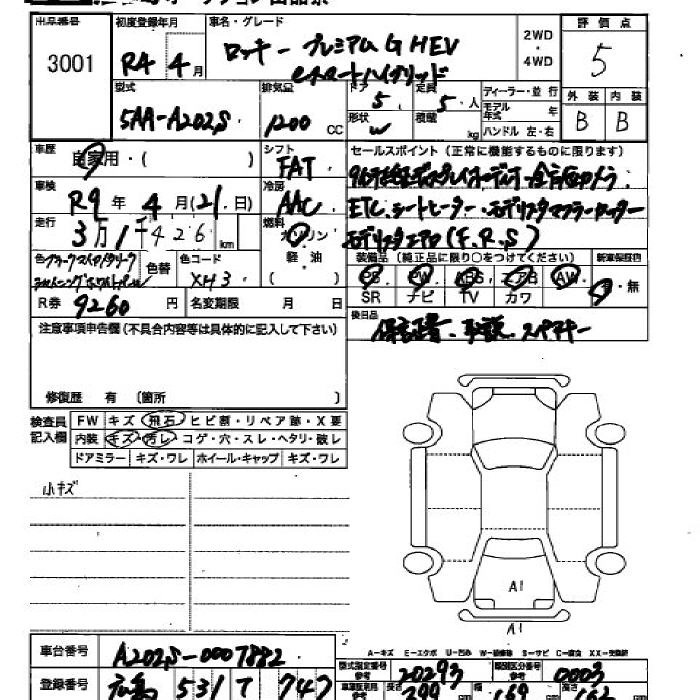 出品番号
3001
初度登録年月
R4年4月
車名・グレード
ロッキー プレミアムG HEV
eスマートハイブリッド
2WD
・
4WD
評価点
5
型式
5AA-A202S
排気量
1200 CC
ドア
5
形状
W
定員
5人
積載
kg
ディーラー・並行
モデル年式 年
ハンドル 左・右
外装 内装
B B
車歴
自家用・( )
シフト
FAT
セールスポイント(正常に機能するものに限ります)
9インチディスプレイオーディオ・全方位カメラ
ETC・シートヒーター・モデリスタマフラーカッター
モデリスタエアロ(F.R.S)
車検
R9年4月(21.日)
冷房
AAC
走行
3万1千426km
燃料
ガソリン
軽・油
( )
色替
色コード
XH3
装備品(純正品に限り○をつけてください)
新車保証書
PS PW ABS エアB AW
・無
SR ナビ TV カワ
R券 9260円
名変期限 月 日
後日品
保証書・取説・スペアキー
注意事項申告欄(不具合内容等は具体的に記入して下さい)
修復歴 有 〔箇所 〕
検査員
記入欄
FW キズ・飛石・ヒビ割・リペア跡・X要
内装 キズ・汚レ・コゲ・穴・スレ・ヘタリ・破レ
ドアミラー キズ・ワレ ホイール・キャップ キズ・ワレ
小キズ
A1
A1
A-キズ E-エクボ U-凹み W-補修跡 S-サビ C-腐食 XX-交換済
車台番号
A202S-0007882
型式指定番号
参考
20293
類別区分番号
参考
0003
登録番号
広島 531 て 747
長さ
399
169
162